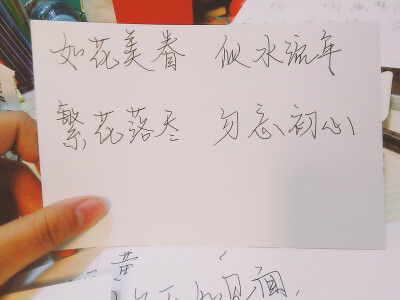 如花美眷 似水流年
繁花落尽 勿忘初心
黄